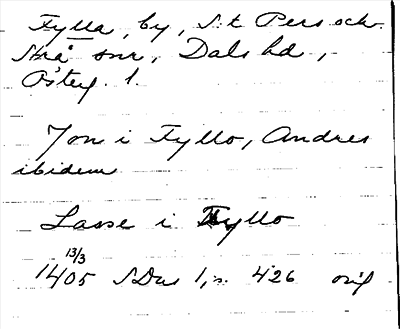 Fylla, by, S:t Pers och
Strå snr, Dals hd,
Östergl. l.
Jon i Fyllo, Andres
ibidem
Lasse i Fyllo
13/3
1405 SDns 1, s. 426 orig